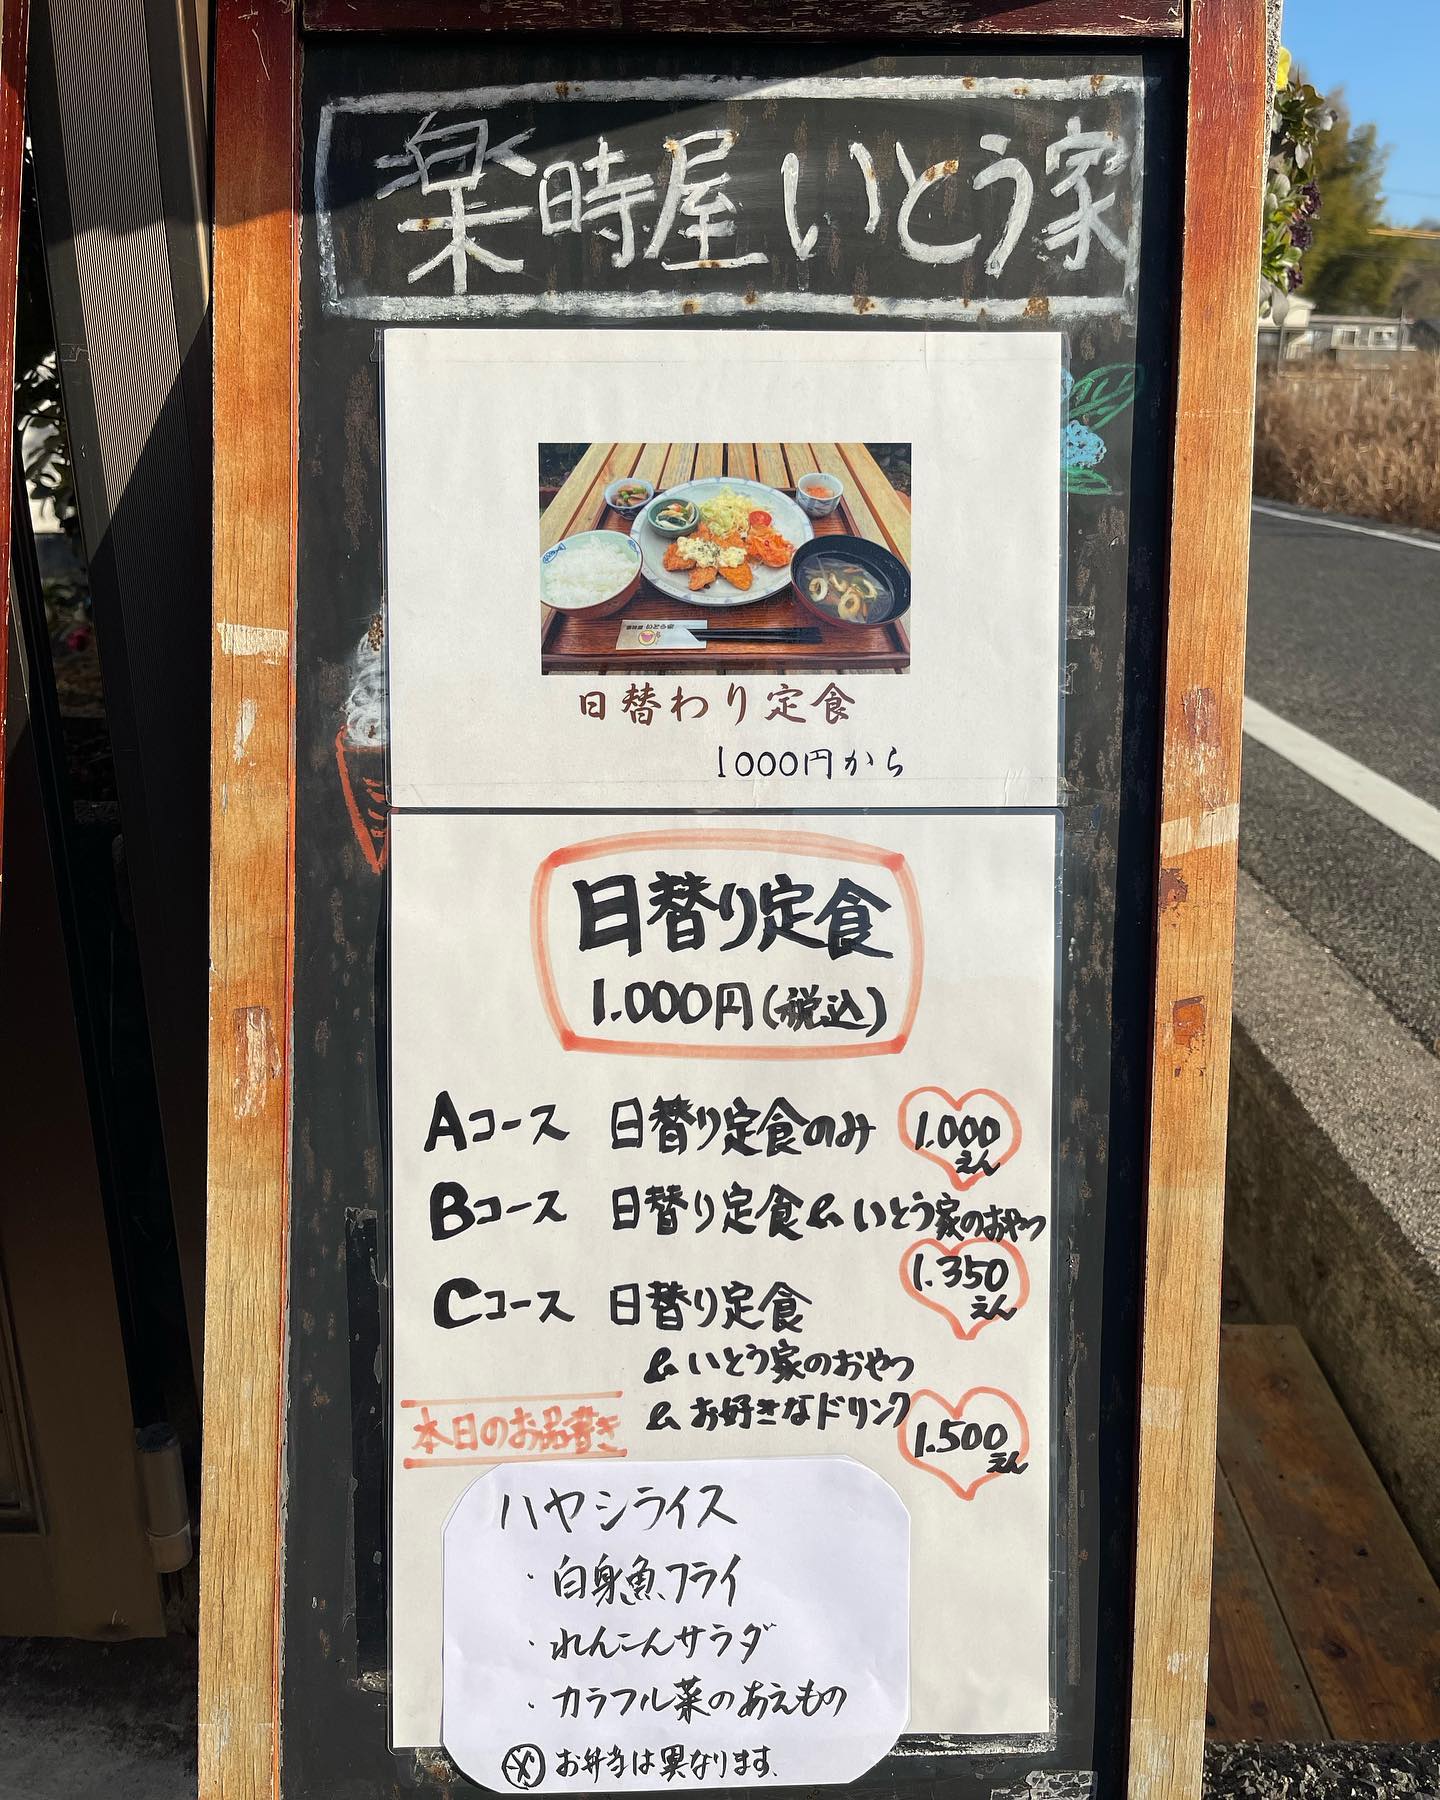 楽時屋いとう家
日替わり定食
1000円から
日替り定食
1.000円(税込)
Aコース 日替り定食のみ 1.000えん
Bコース 日替り定食&いとう家のおやつ
1.350えん
Cコース 日替り定食
&いとう家のおやつ
&お好きなドリンク 1.500えん
本日のお品書き
ハヤシライス
・白身魚フライ
・れんこんサラダ
・カラフル菜のあえもの
※お弁当は異なります。